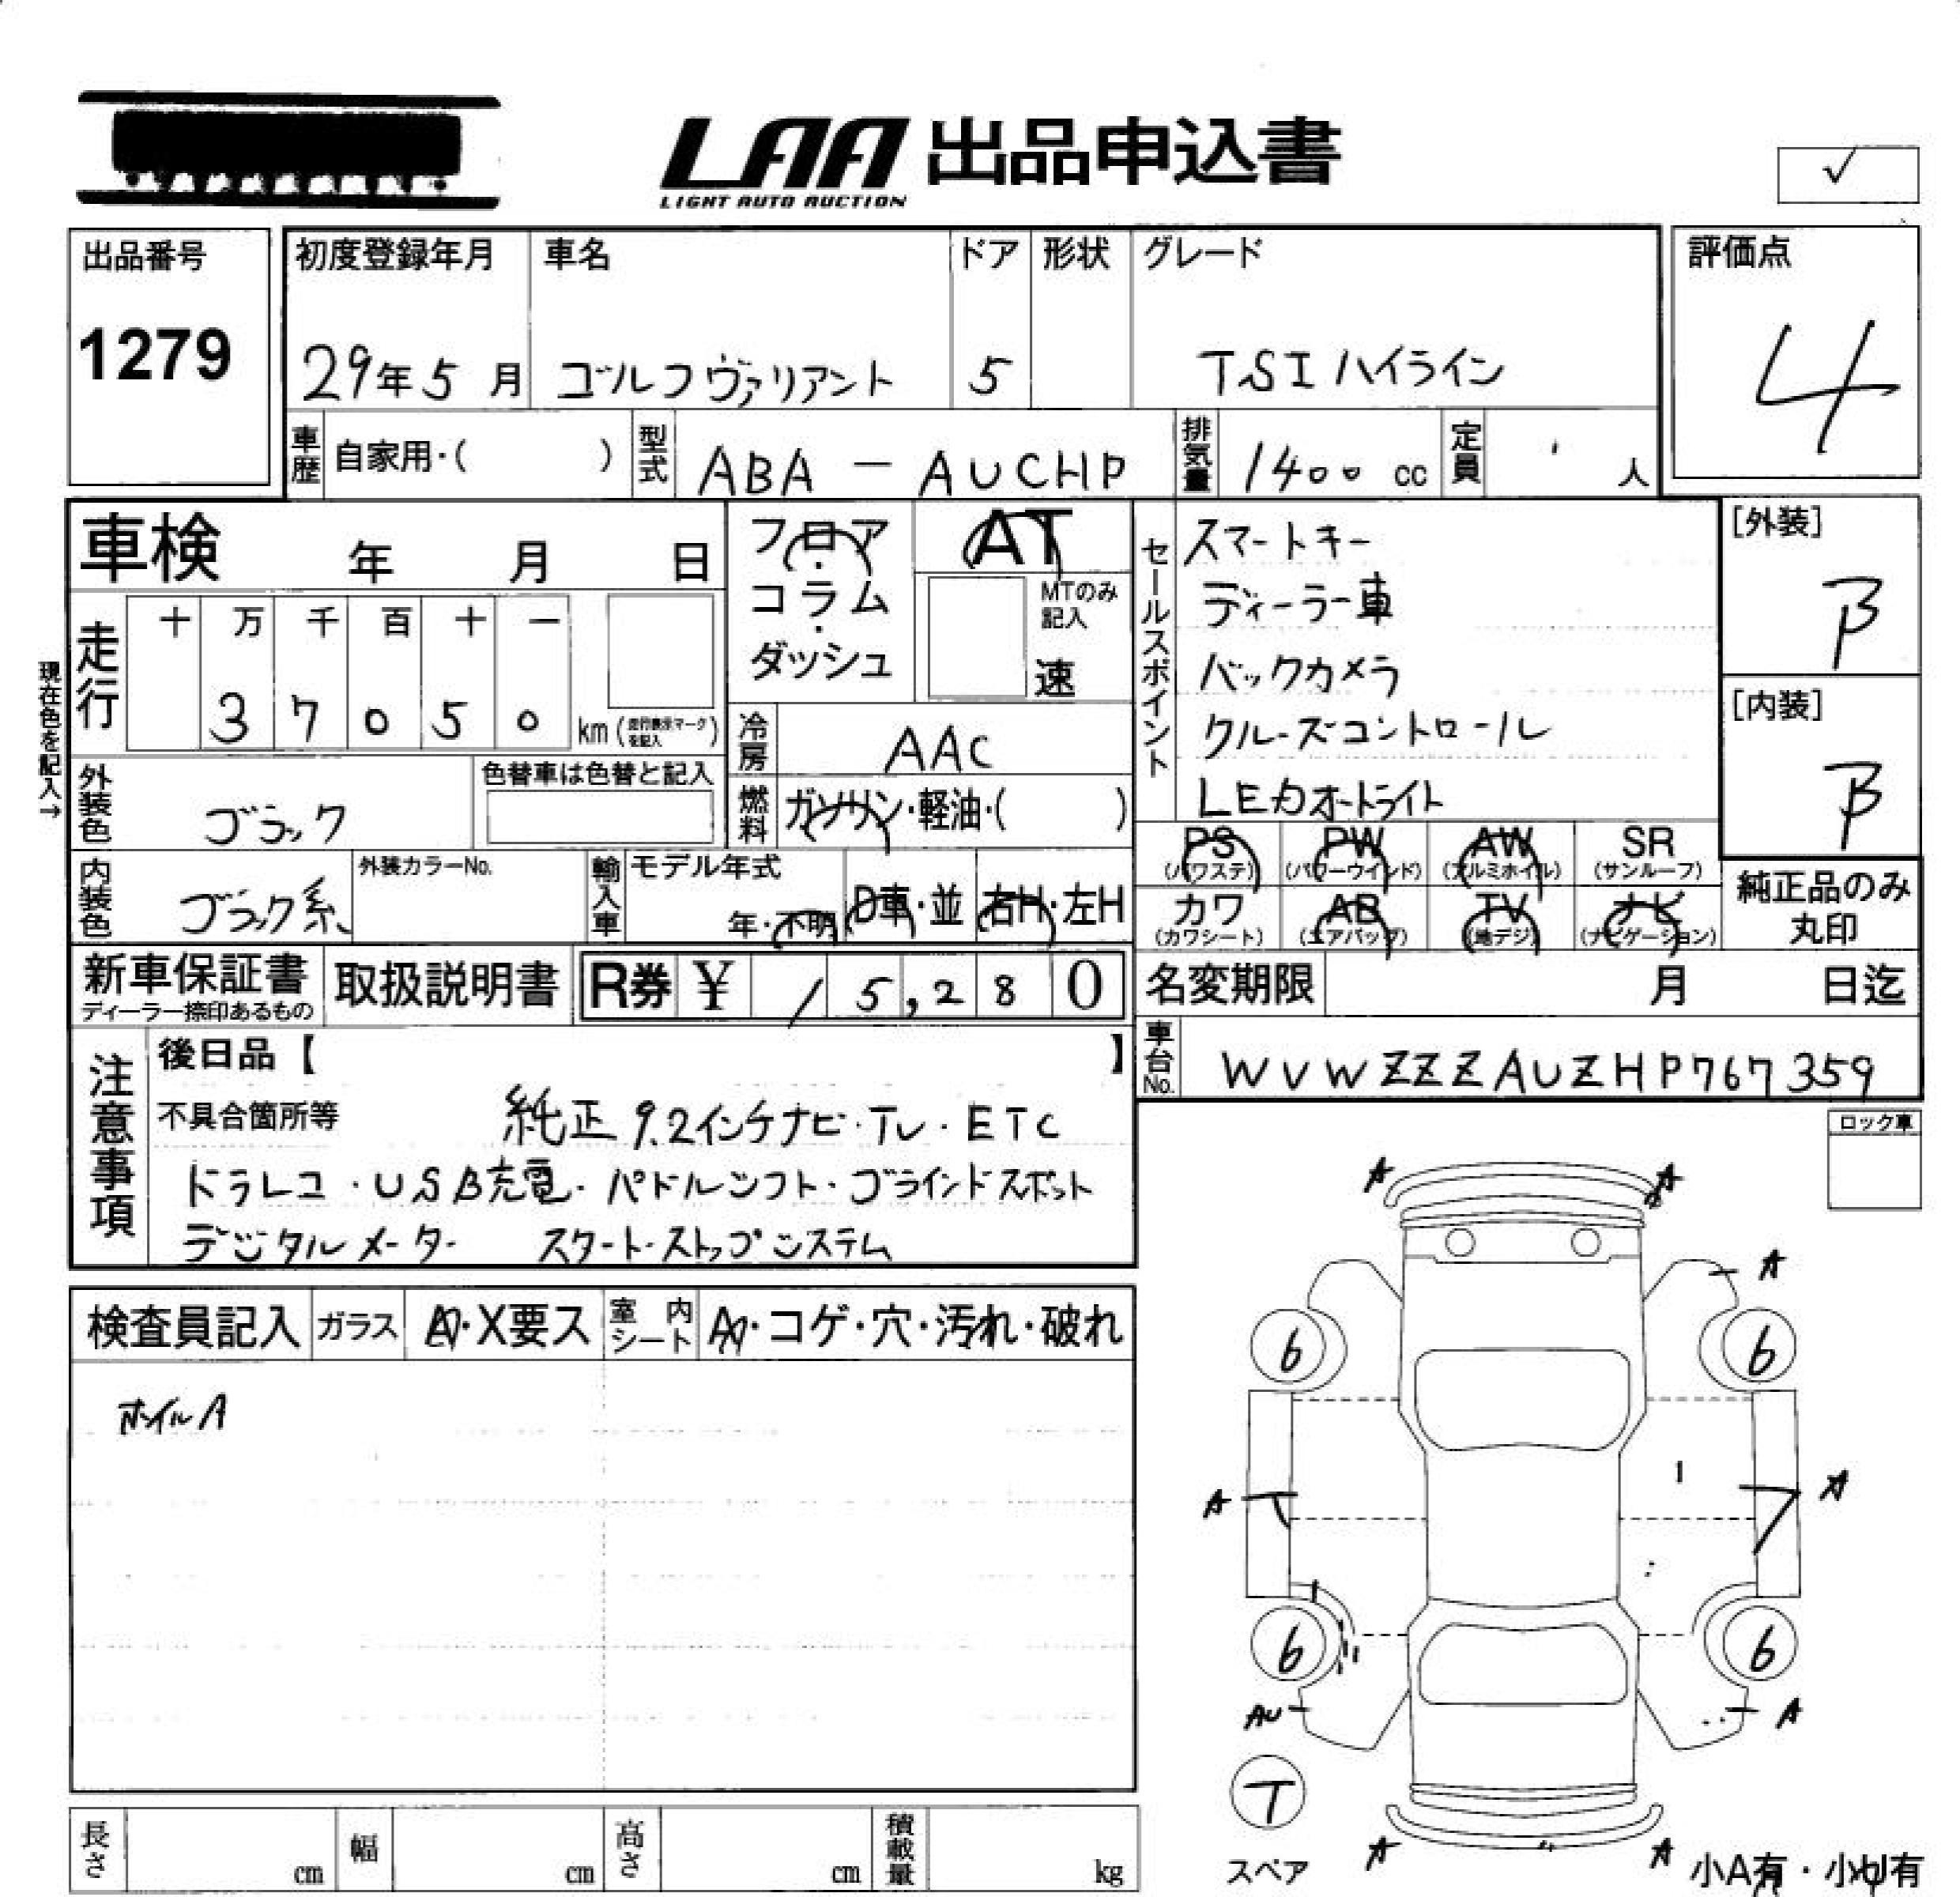 LAA 出品申込書
LIGHT AUTO AUCTION
✓
出品番号
1279
初度登録年月 車名 ドア 形状 グレード
29年5月 ゴルフヴァリアント 5 TSIハイライン
評価点
4
車歴 自家用・( ) 型式 ABA-AUCHP 排気量 1400cc 定員 人
車検 年 月 日
フロア・コラム・ダッシュ
AT
MTのみ記入
速
セールスポイント
スマートキー
ディーラー車
バックカメラ
クルーズコントロール
LEDオートライト
[外装]
B
[内装]
B
現在色を記入→
走行 十 万 千 百 十 一
37050 km(走行表示マークを記入)
冷房 AAC
外装色 ブラック 色替車は色替と記入
燃料 ガソリン・軽油・( )
内装色 ブラック系 外装カラーNo.
輸入車 モデル年式
年・不明 D車・並 右H・左H
PS (パワステ) PW (パワーウインド) AW (アルミホイル) SR (サンルーフ)
カワ (カワシート) AB (エアバッグ) TV (地デジ) ナビ (ナビゲーション)
純正品のみ
丸印
新車保証書 取扱説明書 R券 ¥ 15,280
ディーラー捺印あるもの
名変期限 月 日迄
車台No. WVWZZZAUZHP767359
注意事項
後日品【 】
不具合箇所等 純正9.2インチナビ・TV・ETC
ドラレコ・USB充電・パドルシフト・ブラインドスポット
デジタルメーター スタートストップシステム
ロック車
検査員記入 ガラス A・X要ス 室内シート A・コゲ・穴・汚れ・破れ
ホイルA
A A
A
6 6
A A
6 6
AU A
T
スペア
A A
小A有・小U有
長さ cm 幅 cm 高さ cm 積載量 kg